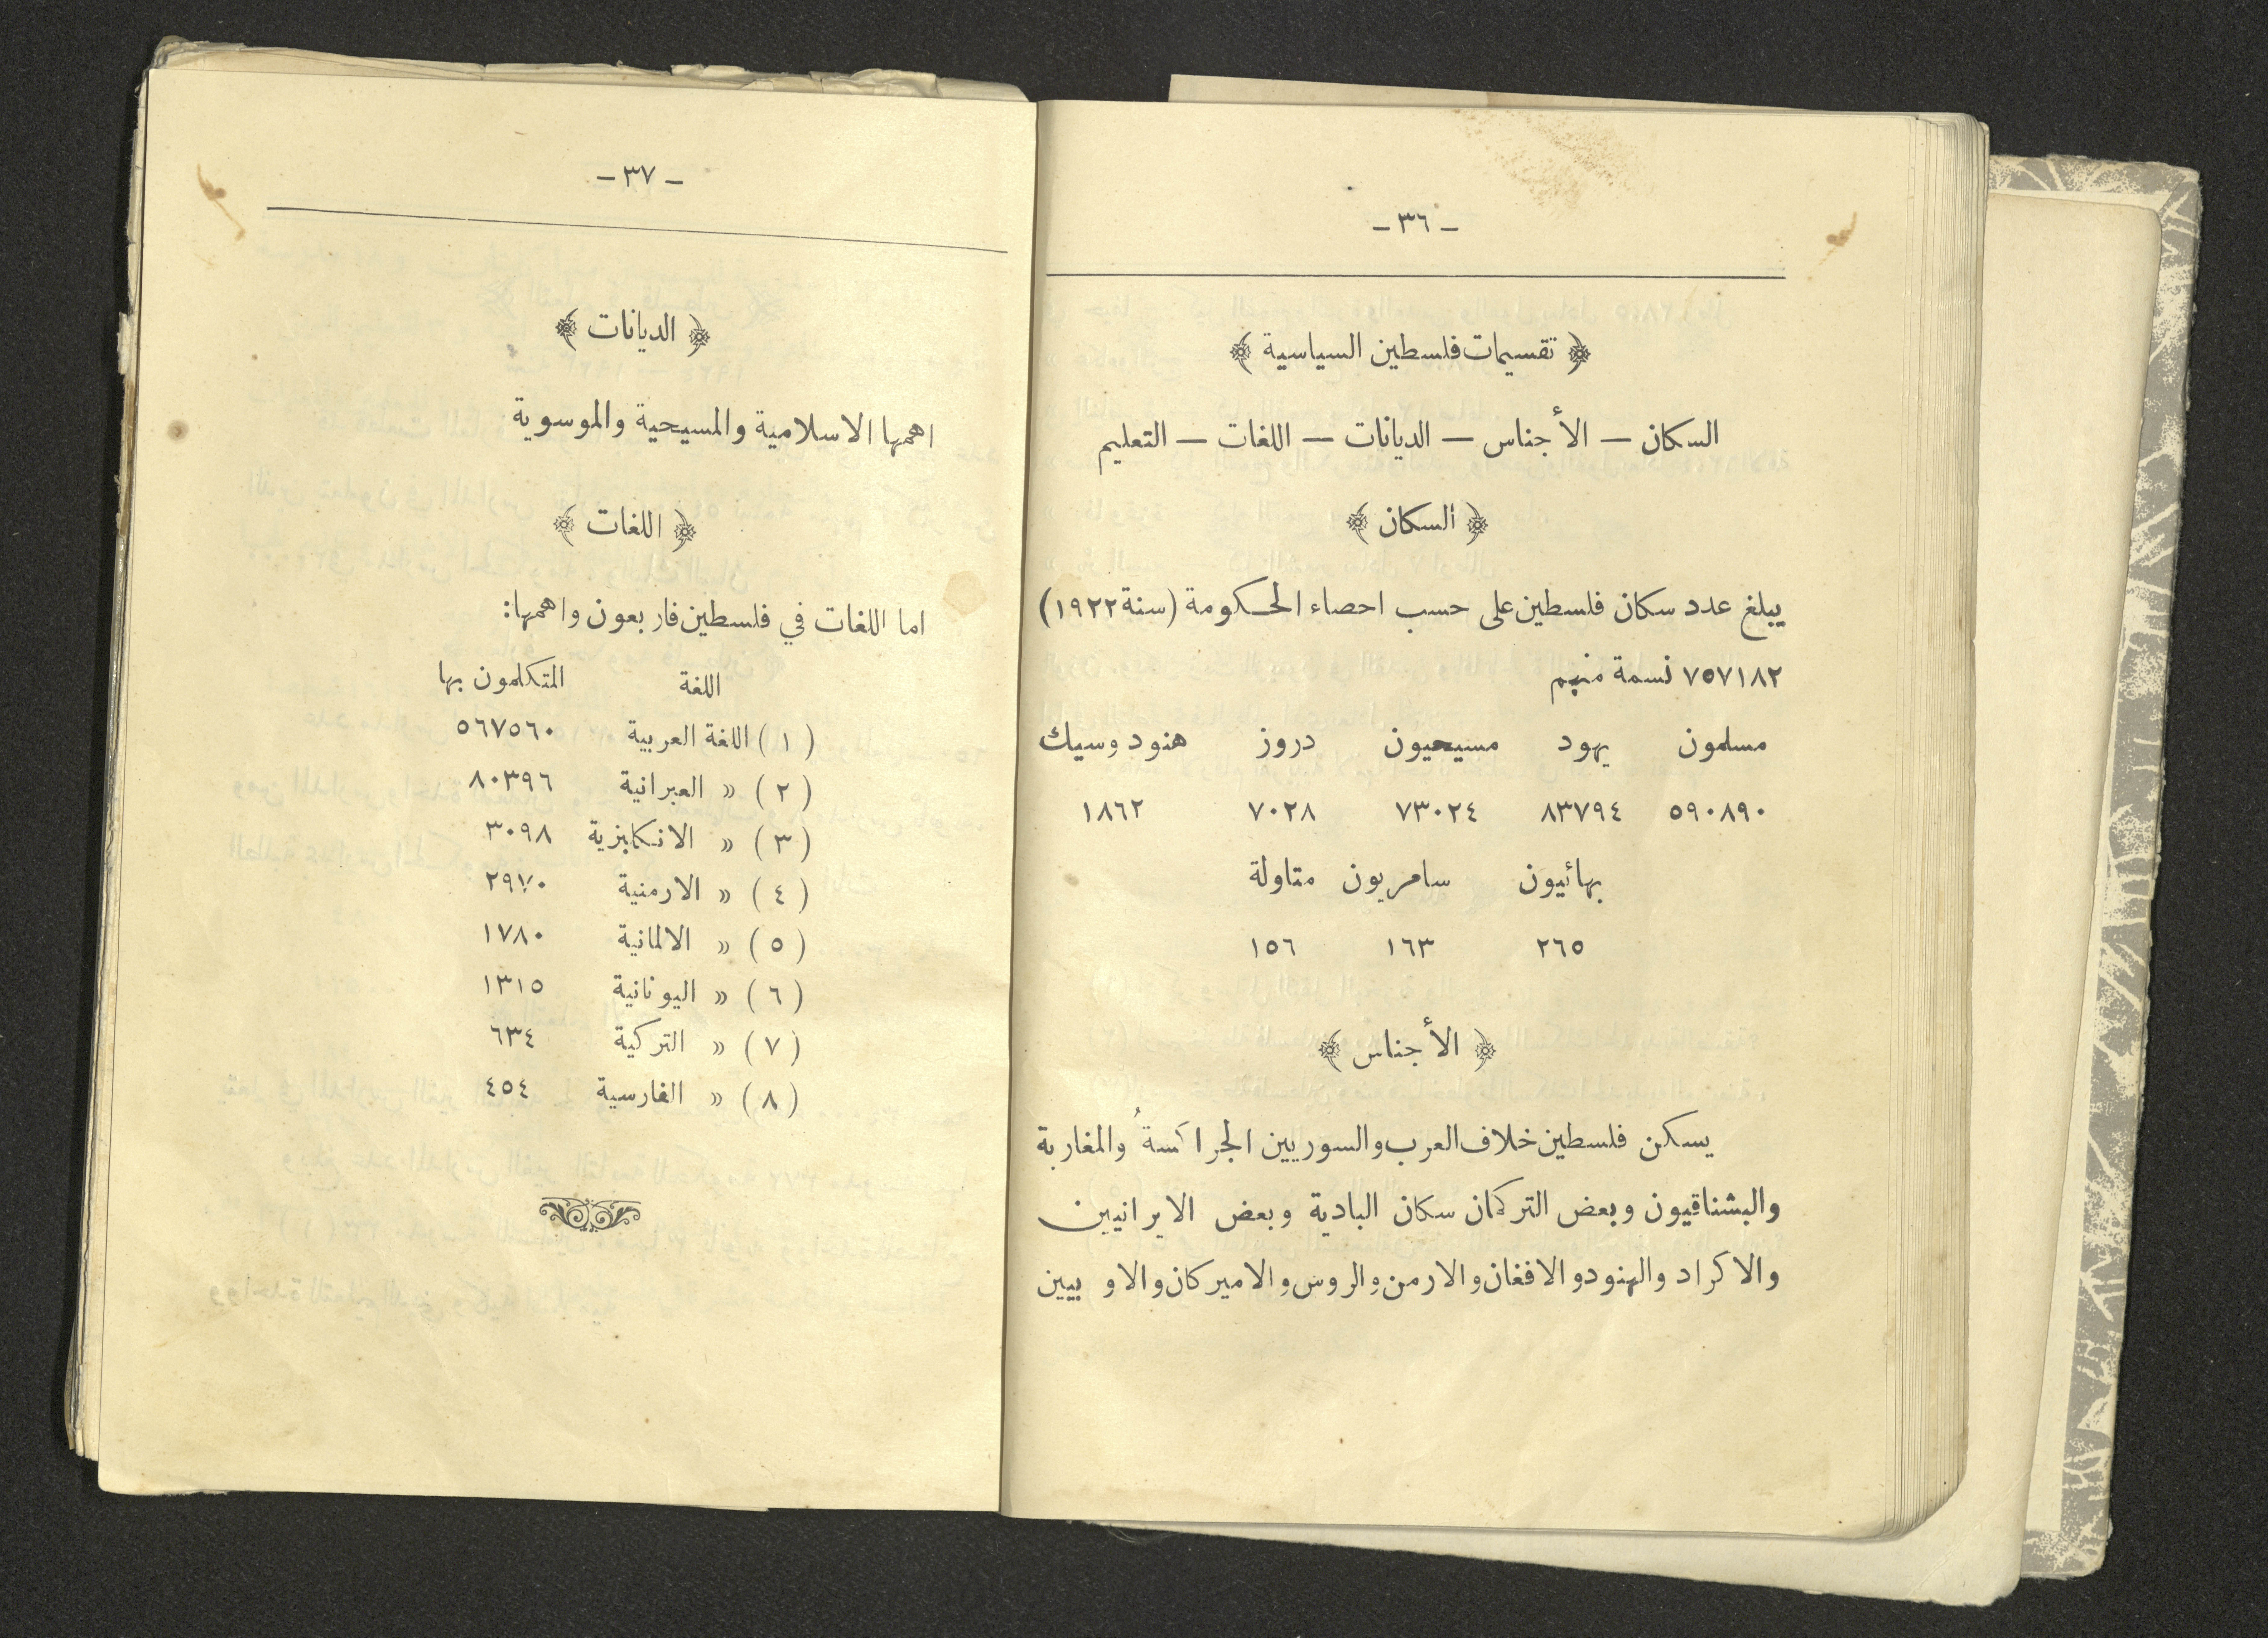 - ٣٦ -
﴿ تقسيمات فلسطين السياسية ﴾
السكان — الأجناس — الديانات — اللغات — التعليم
﴿ السكان ﴾
يبلغ عدد سكان فلسطين على حسب احصاء الحكومة (سنة ١٩٢٢)
٧٥٧١٨٢ نسمة منهم
مسلمون يهود مسيحيون دروز هنود وسيك
٥٩٠٨٩٠ ٨٣٧٩٤ ٧٣٠٢٤ ٧٠٢٨ ١٨٦٢
بهائيون سامريون متاولة
٢٦٥ ١٦٣ ١٥٦
﴿ الأجناس ﴾
يسكن فلسطين خلاف العرب والسوريين الجراكسةُ والمغاربة
والبشناقيون وبعض التركمان سكان البادية وبعض الايرانيين
والاكراد والهنود والافغان والارمن والروس والاميركان والاو بيين
- ٣٧ -
﴿ الديانات ﴾
اهمها الاسلامية والمسيحية والموسوية
﴿ اللغات ﴾
اما اللغات في فلسطين فاربعون واهمها:
اللغة المتكلمون بها
(١) اللغة العربية ٥٦٧٥٦٠
(٢) « العبرانية ٨٠٣٩٦
(٣) « الانكليزية ٣٠٩٨
(٤) « الارمنية ٢٩٧٠
(٥) « الالمانية ١٧٨٠
(٦) « اليونانية ١٣١٥
(٧) « التركية ٦٣٤
(٨) « الفارسية ٤٥٤